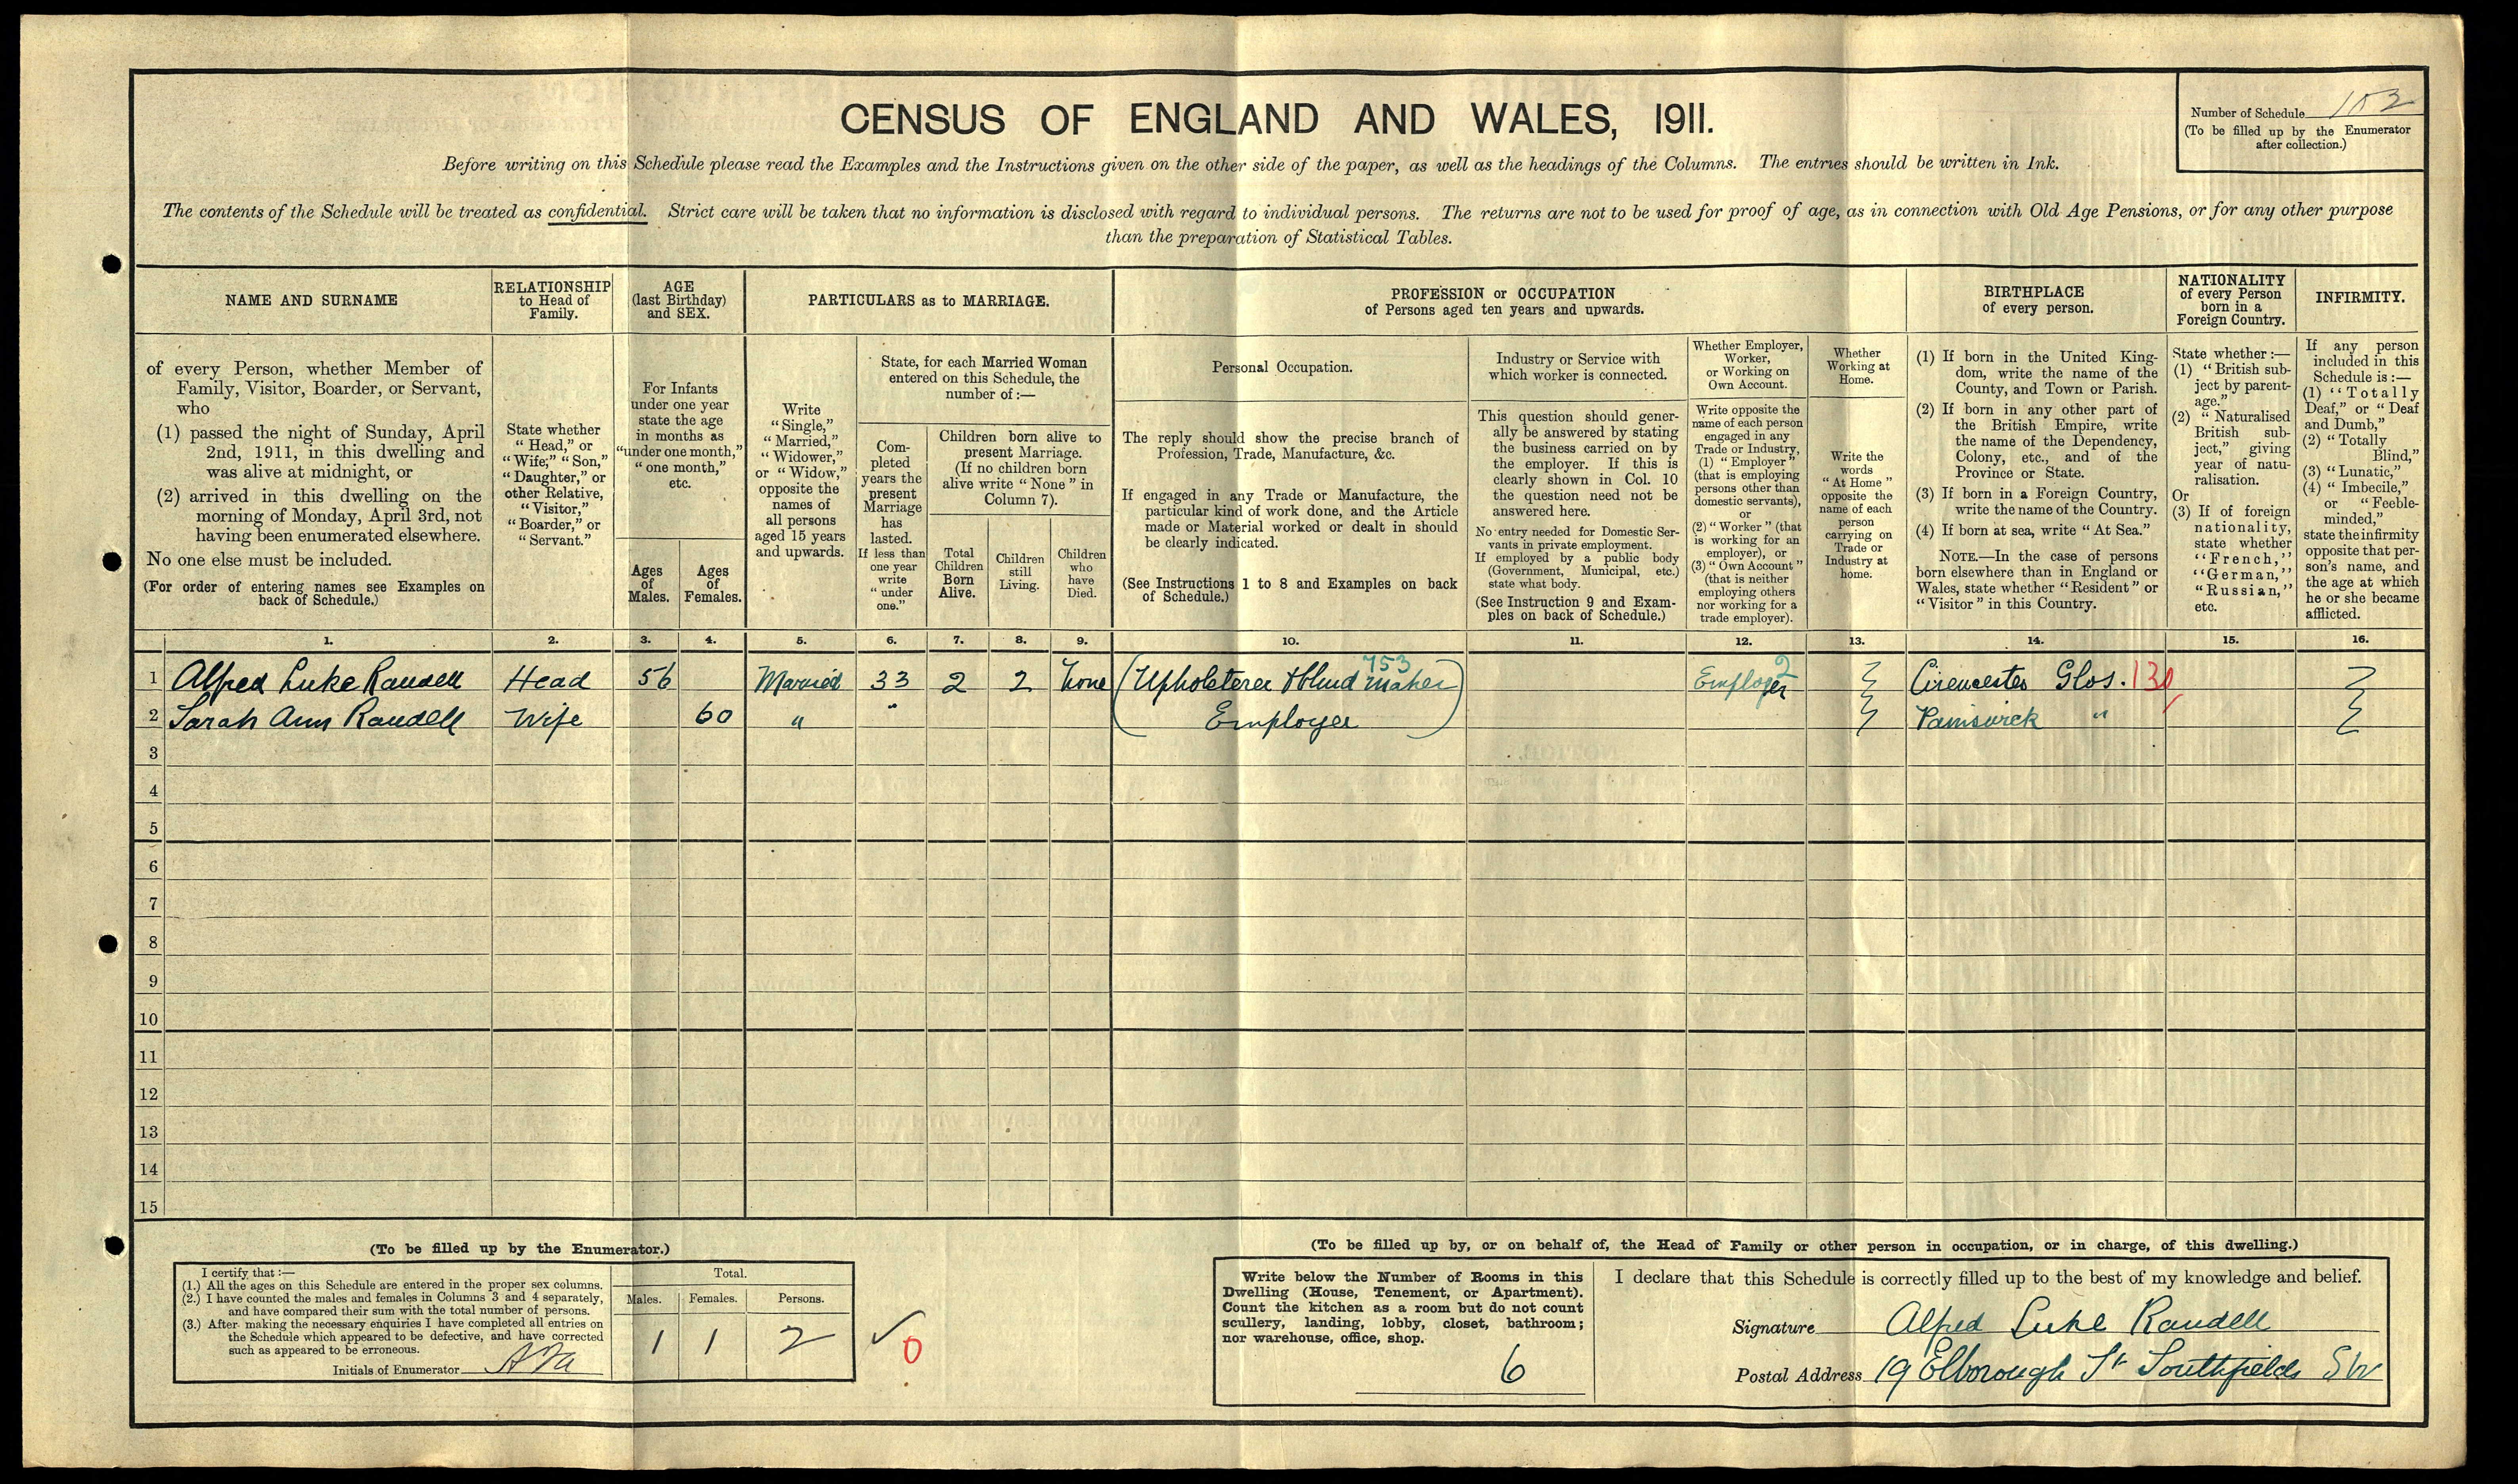 CENSUS OF ENGLAND AND WALES, 1911.
Number of Schedule 
(To be filled up by the Enumerator
after collection.)
Before writing on this Schedule please read the Examples and the Instructions given on the other side of the paper, as well as the headings of the Columns. The entries should be written in Ink.
The contents of the Schedule will be treated as confidential. Strict care will be taken that no information is disclosed with regard to individual persons. The returns are not to be used for proof of age, as in connection with Old Age Pensions, or for any other purpose
than the preparation of Statistical Tables.
NAME AND SURNAME
RELATIONSHIP
to Head of
Family.
AGE
(last Birthday)
and SEX.
PARTICULARS as to MARRIAGE.
PROFESSION or OCCUPATION
of Persons aged ten years and upwards.
BIRTHPLACE
of every person.
NATIONALITY
of every Person
born in a
Foreign Country.
INFIRMITY.
of every Person, whether Member of
Family, Visitor, Boarder, or Servant,
who
(1) passed the night of Sunday, April
2nd, 1911, in this dwelling and
was alive at midnight, or
(2) arrived in this dwelling on the
morning of Monday, April 3rd, not
having been enumerated elsewhere.
No one else must be included.
(For order of entering names see Examples on
back of Schedule.)
State whether
"Head," or
"Wife," "Son,"
"Daughter," or
other Relative,
"Visitor,"
"Boarder," or
"Servant."
For Infants
under one year
state the age
in months as
"under one month,"
"one month,"
etc.
Ages
of
Males.
Ages
of
Females.
Write
"Single,"
"Married,"
"Widower,"
or "Widow,"
opposite the
names of
all persons
aged 15 years
and upwards.
State, for each Married Woman
entered on this Schedule, the
number of:—
Com-
pleted
years the
present
Marriage
has
lasted.
If less than
one year
write
"under
one."
Children born alive to
present Marriage.
(If no children born
alive write "None" in
Column 7).
Total
Children
Born
Alive.
Children
still
Living.
Children
who
have
Died.
Personal Occupation.
The reply should show the precise branch of
Profession, Trade, Manufacture, &c.
If engaged in any Trade or Manufacture, the
particular kind of work done, and the Article
made or Material worked or dealt in should
be clearly indicated.
(See Instructions 1 to 8 and Examples on back
of Schedule.)
Industry or Service with
which worker is connected.
This question should gener-
ally be answered by stating
the business carried on by
the employer. If this is
clearly shown in Col. 10
the question need not be
answered here.
No entry needed for Domestic Ser-
vants in private employment.
If employed by a public body
(Government, Municipal, etc.)
state what body.
(See Instruction 9 and Exam-
ples on back of Schedule.)
Whether Employer,
Worker,
or Working on
Own Account.
Write opposite the
name of each person
engaged in any
Trade or Industry,
(1) "Employer"
(that is employing
persons other than
domestic servants),
or
(2) "Worker" (that
is working for an
employer), or
(3) "Own Account"
(that is neither
employing others
nor working for a
trade employer).
Whether
Working at
Home.
Write the
words
"At Home"
opposite the
name of each
person
carrying on
Trade or
Industry at
home.
(1) If born in the United King-
dom, write the name of the
County, and Town or Parish.
(2) If born in any other part of
the British Empire, write
the name of the Dependency,
Colony, etc., and of the
Province or State.
(3) If born in a Foreign Country,
write the name of the Country.
(4) If born at sea, write "At Sea."
NOTE.—In the case of persons
born elsewhere than in England or
Wales, state whether "Resident" or
"Visitor" in this Country.
State whether:—
(1) "British sub-
ject by parent-
age."
(2) "Naturalised
British sub-
ject," giving
year of natu-
ralisation.
Or
(3) If of foreign
nationality,
state whether
"French,"
"German,"
"Russian,"
etc.
If any person
included in this
Schedule is:—
(1) "Totally
Deaf," or "Deaf
and Dumb,"
(2) "Totally
Blind,"
(3) "Lunatic,"
(4) "Imbecile,"
or "Feeble-
minded,"
state the infirmity
opposite that per-
son's name, and
the age at which
he or she became
afflicted.
1. 2. 3. 4. 5. 6. 7. 8. 9. 10. 11. 12. 13. 14. 15. 16.
753 2
1 Alfred Luke Randell Head 56 Married 33 2 2 None (Upholsterer & blind maker) Employer Cirencester Glos. 130
2 Sarah Ann Randell Wife 60 " " Employer Painswick "
3
4
5
6
7
8
9
10
11
12
13
14
15
(To be filled up by the Enumerator.)
I certify that:—
(1.) All the ages on this Schedule are entered in the proper sex columns.
(2.) I have counted the males and females in Columns 3 and 4 separately,
and have compared their sum with the total number of persons.
(3.) After making the necessary enquiries I have completed all entries on
the Schedule which appeared to be defective, and have corrected
such as appeared to be erroneous.
Initials of Enumerator
Total.
Males. Females. Persons.
1 1 2
0
(To be filled up by, or on behalf of, the Head of Family or other person in occupation, or in charge, of this dwelling.)
Write below the Number of Rooms in this
Dwelling (House, Tenement, or Apartment).
Count the kitchen as a room but do not count
scullery, landing, lobby, closet, bathroom;
nor warehouse, office, shop.
6
I declare that this Schedule is correctly filled up to the best of my knowledge and belief.
Signature Alfred Luke Randell
Postal Address 19 Elborough St Southfields SW